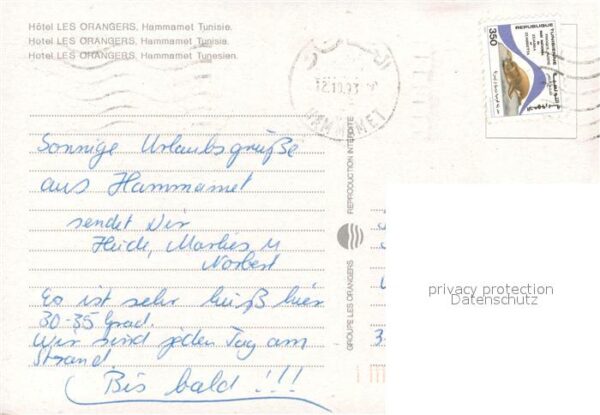 Hôtel LES ORANGERS, Hammamet Tunisie.
Hotel LES ORANGERS, Hammamet Tunisia.
Hotel LES ORANGERS, Hammamet Tunesien.
12.10.93
HAMMAMET
REPUBLIQUE
TUNISIENNE
350
Sonnige Urlaubsgrüße
aus Hammamet
sendet Dir
Heidi, Marlies u
Norbert
Es ist sehr heiß hier
30-35 Grad.
Wir sind jeden Tag am
Strand.
Bis bald !!!
GROUPE LES ORANGERS
REPRODUCTION INTERDITE
privacy protection
Datenschutz
3